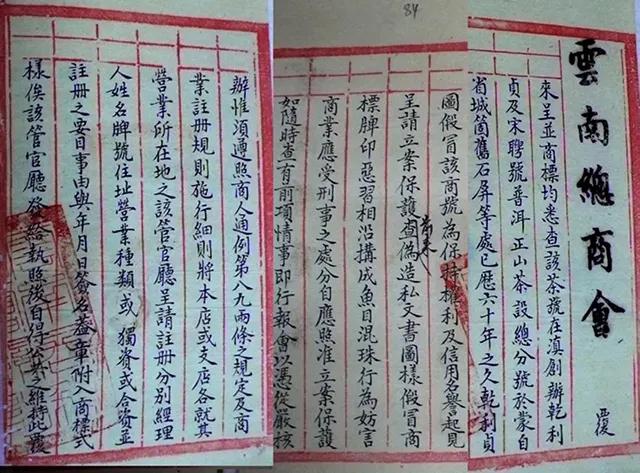 雲南總商會 覆
來呈並商標均悉查該茶號在滇創辦乾利
貞及宋聘號普洱正山茶設總分號於蒙自
省城箇舊石屏等處已歷六十年之久乾利貞
84
圖假冒該商號為保持權利及信用名譽起見
呈請立案保護前來查偽造私文書圖樣假冒商
標牌印惡習相沿搆成魚目混珠行為妨害
商業應受刑事之處分自應照准立案保護
如隨時查有前項情事即行報會以憑從嚴核
辦惟須遵照商人通例第八九兩條之規定及商
業註冊規則施行細則將本店或支店各就其
營業所在地之該管官廳呈請註冊分別經理
人姓名牌號住址營業種類或獨資或合資並
註冊之要目事由與年月日簽名蓋章附入商標式
樣俟該管官廳發給執照後自得之維持此覆